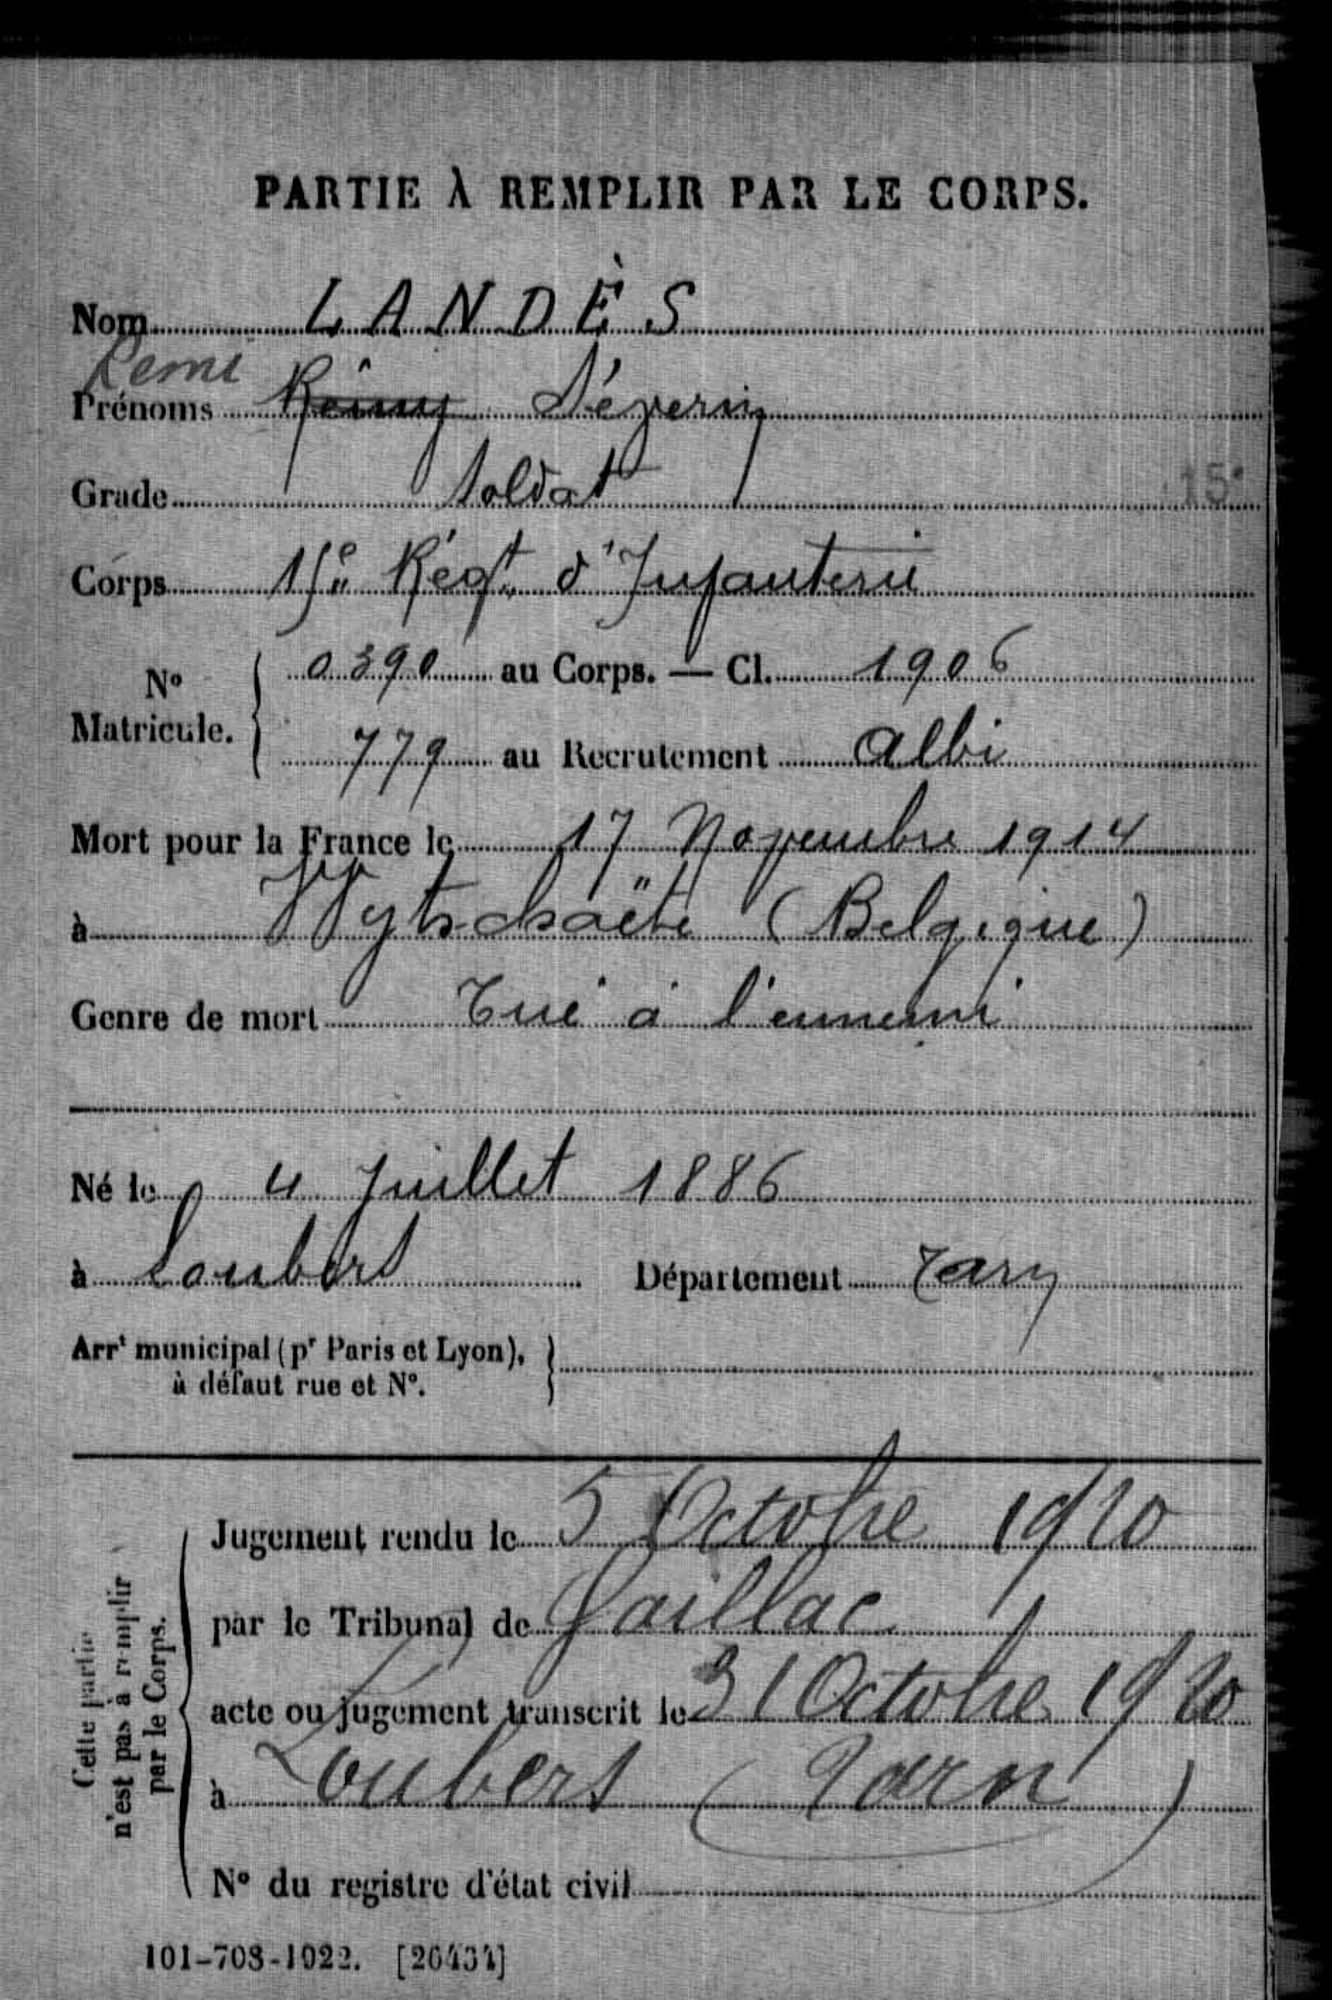 PARTIE À REMPLIR PAR LE CORPS.
Nom LANDÈS
Remi
Prénoms Rémy Séverin
Grade Soldat
15e
Corps 15e Régt d'Infanterie
No Matricule. 0390 au Corps. — Cl. 1906
779 au Recrutement Albi
Mort pour la France le 17 Novembre 1914
à Wytschaëte (Belgique)
Genre de mort Tué à l'ennemi
Né le 4 Juillet 1886
à Loubers Département Tarn
Arrt municipal (pr Paris et Lyon),
à défaut rue et No.
Cette partie
n'est pas à remplir
par le Corps.
Jugement rendu le 5 Octobre 1920
par le Tribunal de Gaillac
acte ou jugement transcrit le 31 Octobre 1920
à Loubers (Tarn)
No du registre d'état civil
101-708-1922. [26434]